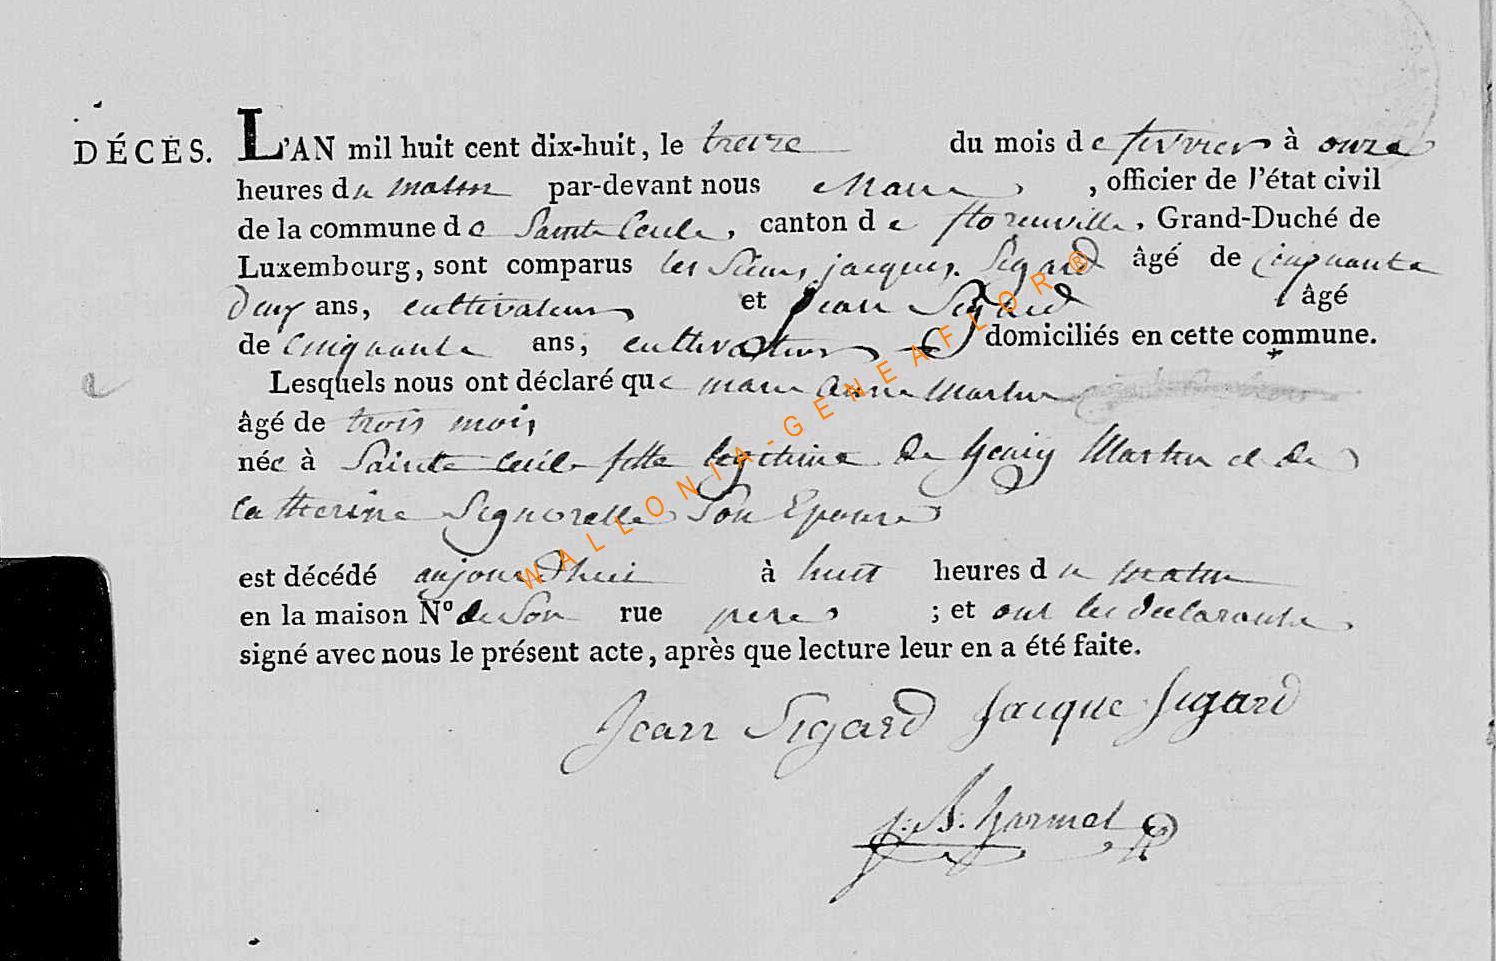 DÉCÈS. L'AN mil huit cent dix-huit, le treize du mois de fevrier à onze
heures du matin par-devant nous Maire, officier de l'état civil
de la commune de Sainte Cecile, canton de florenville, Grand-Duché de
Luxembourg, sont comparus les Sieurs jacques Sigard âgé de Cinquante
Deux ans, cultivateur et jean Sigard âgé
de Cinquante ans, cultivateur domiciliés en cette commune.
Lesquels nous ont déclaré que marie anne Martin
âgé de trois mois
née à Sainte Cecile fille legitime de henry Martin et de
Catherine Signorelle Son Epouse
est décédé aujourd'hui à huit heures du matin
en la maison N° de Son rue pere ; et ont les declarants
signé avec nous le présent acte, après que lecture leur en a été faite.
Jean Sigard Jacque Sigard
j. B. harmel
WALLONIA-GENEAFLOR®